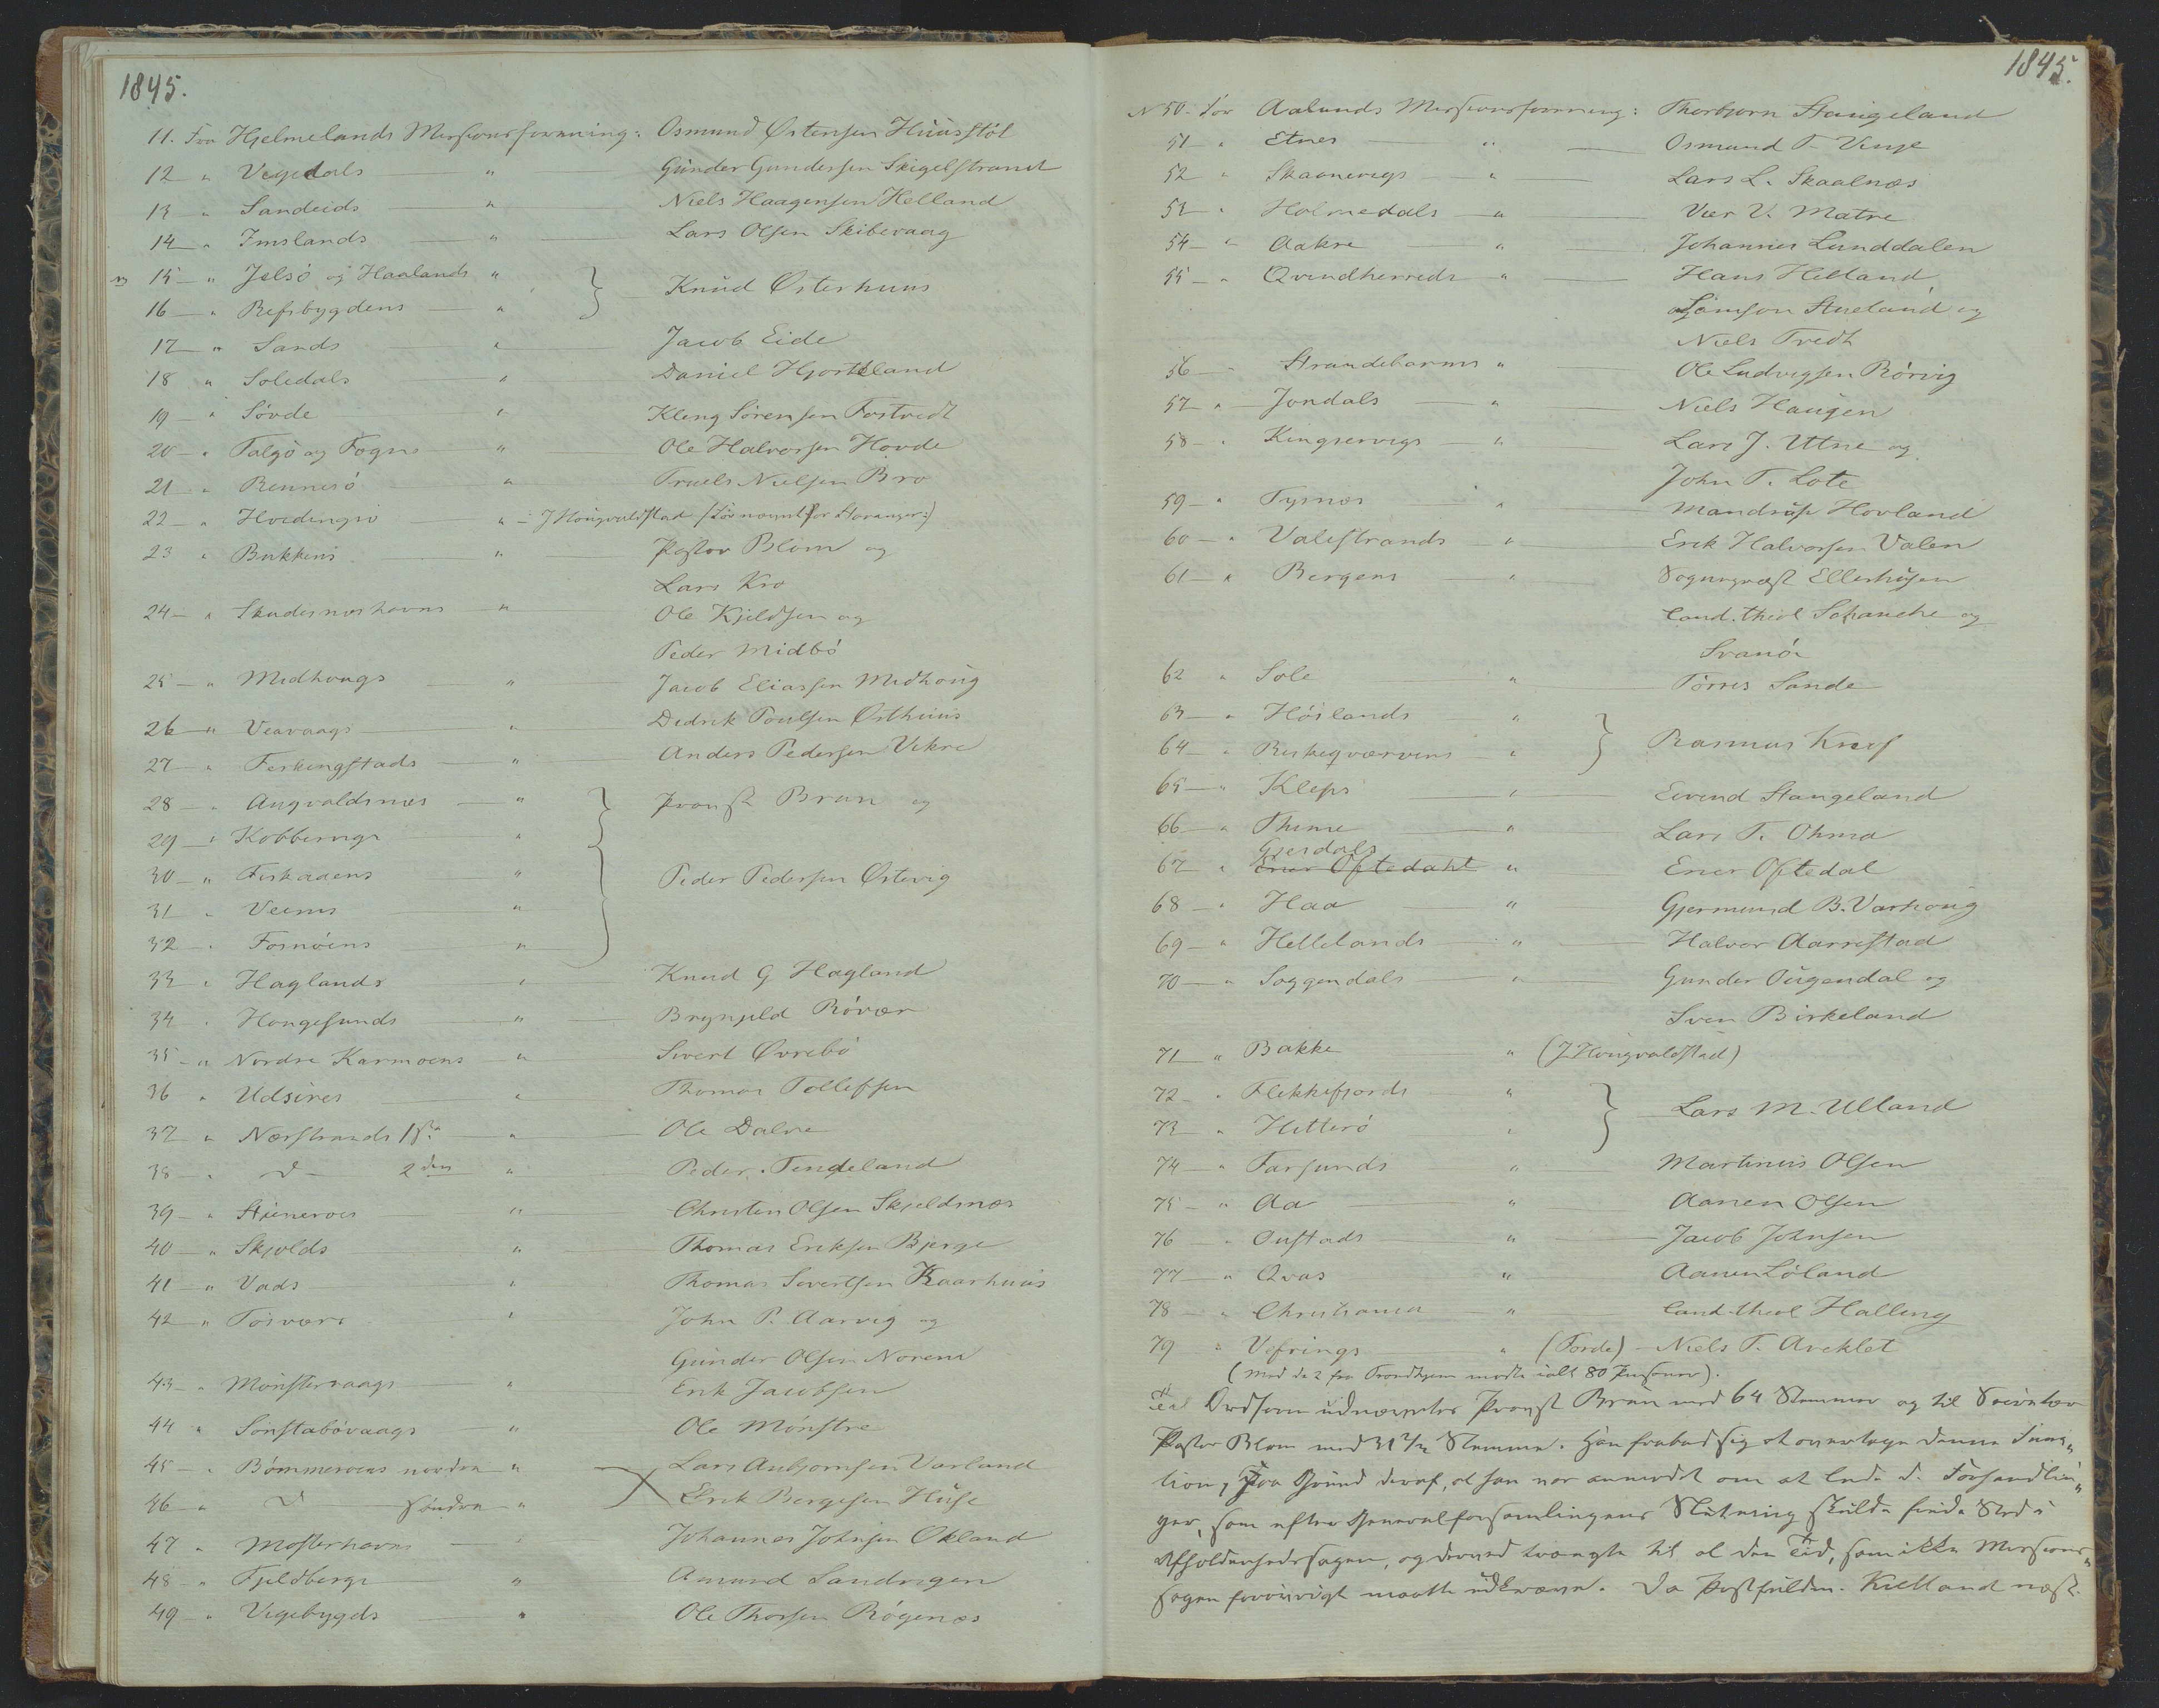 1845.
11. Fra Hjelmelands Missionsforening: Osmund Østensen Huusstöl
12 " Vegedals " Gunder Gundersen Skigelstrand
13 " Sandeids " Niels Haagensen Helland
14 " Imslands " Lars Olsen Skibevaag
15 " Jelsö og Haalands "
16 " Refsbygdens " } Knud Østerhuus
17 " Sands " Jacob Eide
18 " Soledals " Daniel Hjorteland
19 " Søvde " Kleng Sörensen Tostvedt
20 " Talgö og Fogns " Ole Halvorsen Hovde
21 " Rennesö " Truels Nielsen Bro
22 " Hvidingsö " J Hougvaldstad
23 " Bukkens " Pastor Blom og
Lars Kro
24 " Skudesneshavns " Ole Kjeldsen og
Peder Midbö
25 " Midhougs " Jacob Eliassen Midhoug
26 " Veavaags " Didrik Poulsen Østhuus
27 " Ferkingstads " Anders Pedersen Vikre
28 " Augvaldsnes " } Provst Brun og
29 " Kobbervigs "
30 " Fiskaaens " Peder Pedersen Østevig
31 " Veens "
32 " Fosnöens "
33 " Haglands " Knud G Hagland
34 " Hougesunds " Brynjeld Rövær
35 " Nordre Karmoens " Sivert Øvrebö
36 " Udsires " Thomas Tollefsen
37 " Nærstrands 1ste " Ole Dalve
38 " D 2den " Peder Tindeland
39 " Stueneroes " Christen Olsen Skjeldnæs
40 " Skjolds " Thomas Eriksen Bjerge
41 " Vads " Thomas Sivertsen Kaarhuus
42 " Tösværs " John P. Aarvig og
Gunder Olsen Norem
43 " Mönstervaags " Erik Jacobsen
44 " Sönstabövaags " Ole Mönstre
45 " Bömmeroens nordre " Lars Anbjornsen Varland
46 " D söndre " Erik Børgesen Huse
47 " Mosterhavns " Johannes Johnsen Økland
48 " Fjeldbergs " Amund Sandvigen
49 " Vigebygds " Ole Thorsen Rögenæs
1845.
N 50. for Aalunds Missionsforening: Thorbjorn Stangeland
51 " Etnes " Osmund T. Vinje
52 " Skaanevigs " Lars L. Skaalnæs
53 " Holmedals " Vier V. Matre
54 " Aakre " Johannes Lunddalen
55 " Qvindherreds " Hans Helland
Sjamson Stueland og
Niels Tvedt
56 " Strandebarms " Ole Ludvigsen Rörvig
57 " Jondals " Niels Haugen
58 " Kingservigs " Lars J. Utne og
John T. Lote
59 " Tysnæs " Mandrup Hovland
60 " Valestrands " Erik Halvorsen Valen
61 " Bergens " Sogneprest Ellerhusen
Cand. theol Schanche og
Svanöe
62 " Sole " Törres Sande
63 " Höilands "
64 " Riskeqværvens " } Rasmus Kross
65 " Kleps " Eivind Stangeland
66 " Thime " Lars T. Ohma
Gjesdals
67 " Ener Oftedahl " Ener Oftedal
68 " Haa " Gjermund B. Varhoug
69 " Hellelands " Halvor Aarrestad
70 " Soggendals " Gunder Ougendal og
Sven Birkeland
71 " Bakke " (J Hougvaldstad)
72 " Flekkefjords "
73 " Hitterö " } Lars M. Ulland
74 " Farsunds " Martinus Olsen
75 " Aa " Aanen Olsen
76 " Oustads " Jacob Johnsen
77 " Qvas " Aanen Löland
78 " Christiania " Cand. theol Halling
79 " Vefrings " (Förde) Niels T. Aveklet
(med de 2 fra Trondhjem mødte ialt 80 Personer).
Til Ordfører udnævntes Provst Brun med 64 Stemmer og til Secretær
Pastor Blom med 31 1/2 Stemme. Han frabad sig at overtage denne Func-
tion, paa Grund deraf, at han var anmodet om at lede de Forhandlin-
ger, som efter Generalforsamlingens Slutning skulde finde Sted i
Afholdenhedssagen, og derved trængte til al den Tid, som ikke Missions-
sagen forövrigt maatte udkræve. Da Kielland næst